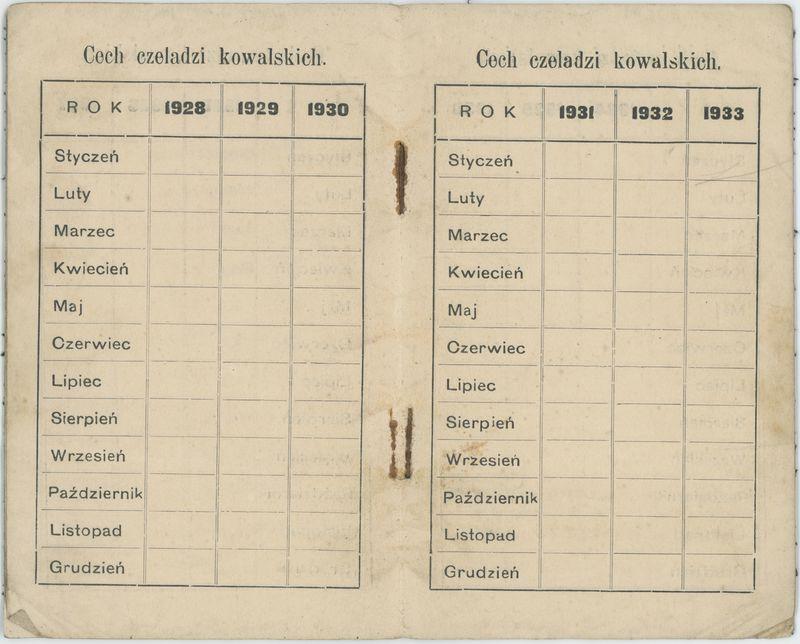 Cech czeladzi kowalskich.
ROK 1928 1929 1930
Styczeń
Luty
Marzec
Kwiecień
Maj
Czerwiec
Lipiec
Sierpień
Wrzesień
Październik
Listopad
Grudzień
Cech czeladzi kowalskich.
ROK 1931 1932 1933
Styczeń
Luty
Marzec
Kwiecień
Maj
Czerwiec
Lipiec
Sierpień
Wrzesień
Październik
Listopad
Grudzień